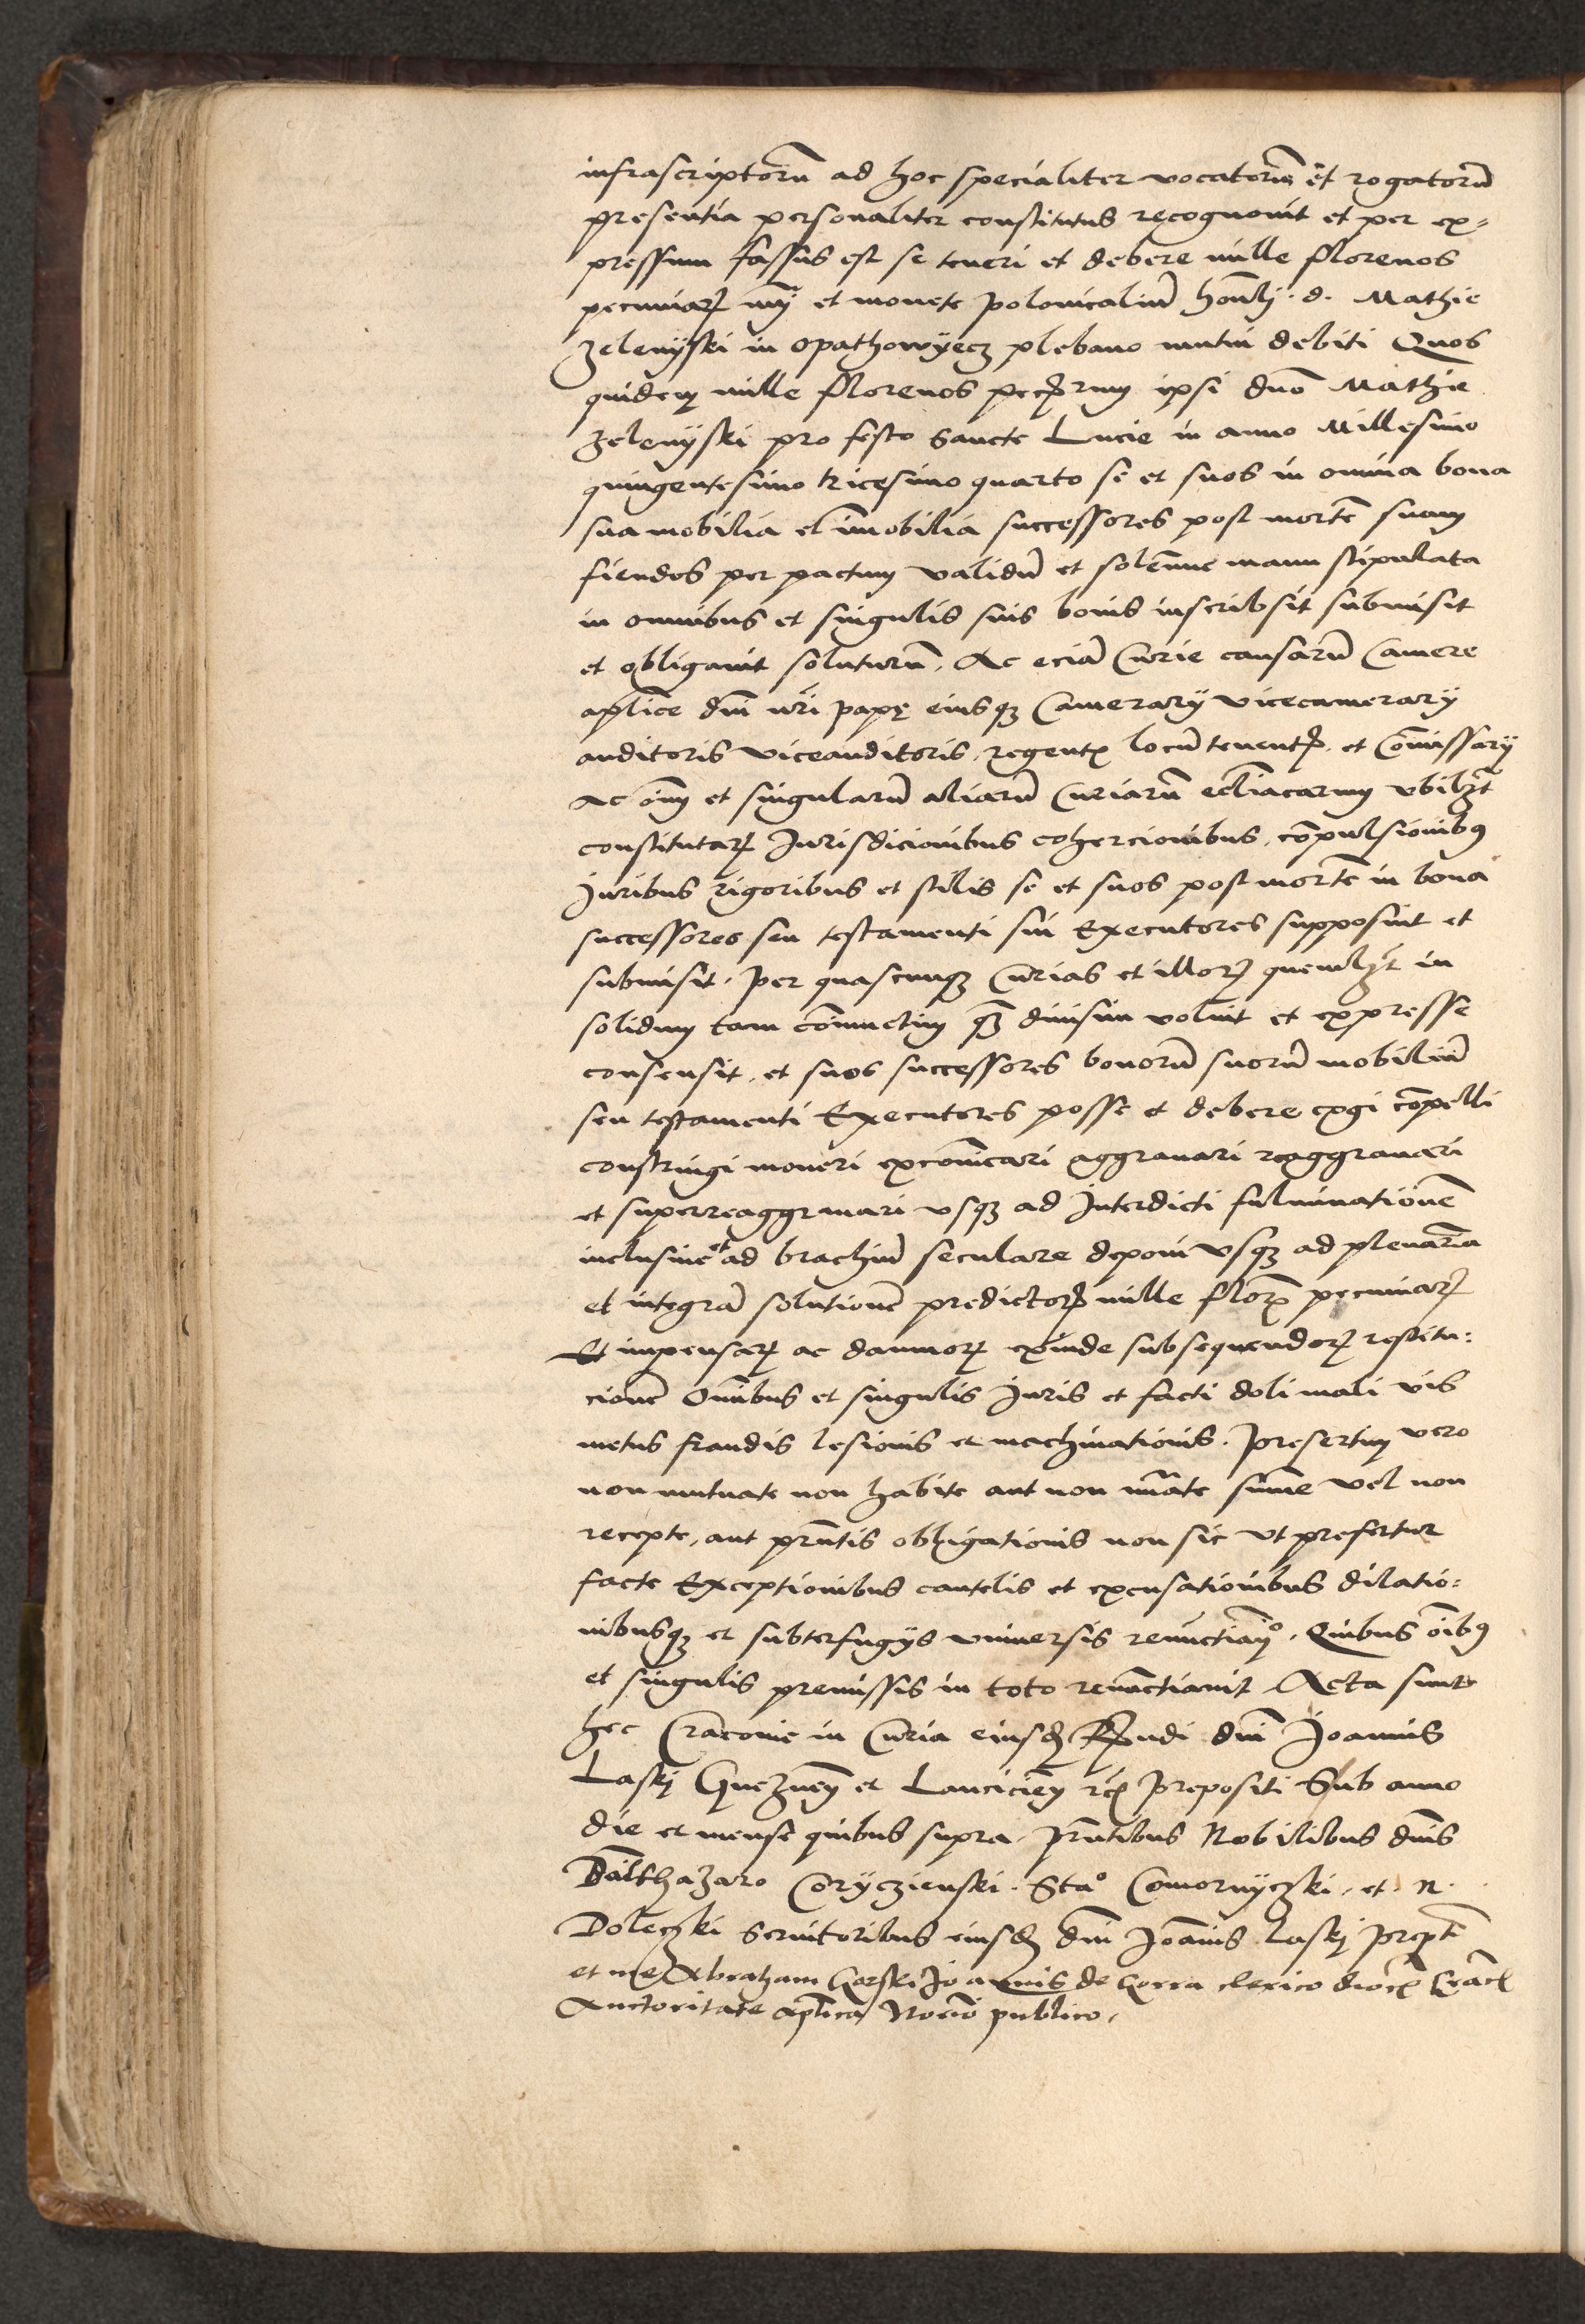 infrascriptorũ ad hoc specialiter vocatorũ et rogatorũ
presentia personaliter constitutus recognouit et per ex-
pressum fassus est se teneri et debere mille florenos
pecuniarꝝ nũj et monete polonicaliũ honlj. d. Mathie
Zelenÿski in opathowÿecz plebano mutui debiti Quos
quidem mille florenos peccuniarum ipsi dno Mathie
Zelenÿski pro festo Sancte Lucie in anno Millesimo
quingentesimo tricesimo quarto se et suos in omnia bona
sua mobilia et imobilia successores post mortẽ suam
fiendos per pactum validũ et solẽnne manu stipulata
in omnibus et singulis suis bonis inscribsit submisit
et obligauit soluturũ, Ac eciã Curie causarũ Camere
aplice dni nri pape eiusqꝫ Camerarÿ vicecamerarÿ
auditoris viceauditoris, regentꝭ locũtenentꝭ, et Comissarÿ
Ac õim et singularũ aliarũ Curiarũ eccliacarum vbilꝫt
constitutarꝝ Iurisdicionibus cohercionibus, compulsionibꝰ
Iuribus rigoribus et stilis se et suos post mortẽ in bona
successores seu testamenti sui Executores supposuit et
submisit, per quascunqꝫ Curias et illorꝝ quemlꝫt in
solidum tam coniunctim qꝫ diuisim voluit et expresse
consensit, et suos successores bonorũ suorũ mobiliũ
seu testamenti Executores posse et debere cogi cõpelli
constringi moneri excomũicari aggrauari reaggrauari
et superreaggrauari vsqꝫ ad Interdicti fulminationẽ
inclusiue et ad brachiũ seculare deponi vsqꝫ ad plenariã
et integrã solutionẽ predictorꝝ mille florꝭ pecuniarꝝ
Et impensarꝝ ac damnorꝝ exinde subsequendorꝝ restitu-
cionẽ Omibus et singulis Iuris et facti doli mali vis
metus fraudis lesionis et machinationis. Presertim vero
non mutuate non habite aut non nũate sũme vel non
recepte, aut prñtis obligationis non sic vt prefertur
facte Exceptionibus cautelis et excusationibus dilatio-
nibusqꝫ et subterfugÿs vniuersis renũctiam̃o. Quibus oibꝰ
et singulis premissis in toto renũctiauit Acta sunt
hec Cracouie in Curia eiusdẽ Rndi dni Joannis
Laskj Gneznen et Lanciciẽn etc Prepositi Sub anno
die et mense quibus supra. Prñtibus Nobilibus dnis
Balthazaro Corÿczienski. Stao Comornÿczki, et N.
Doleczki Seruitoribus eiusdẽ dni Joãnis Laskj prept
et me Abraham Gorski Joannis de Gorra clerico diocꝭ Cracꝭ
Auctoritate aplica Notario publico.